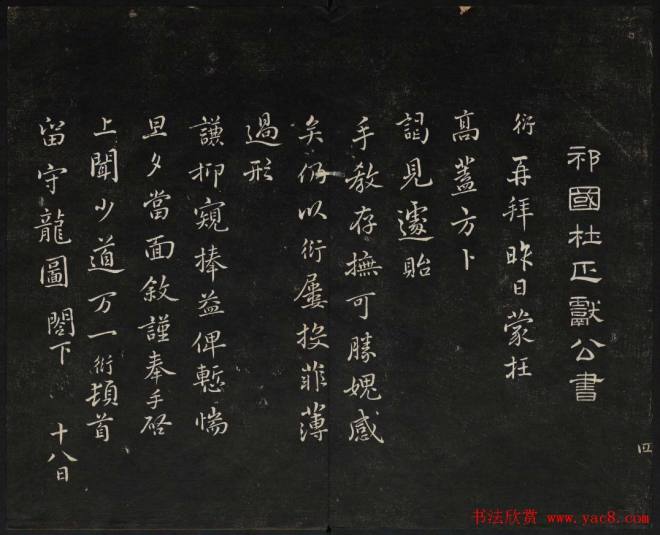 祁國杜正獻公書
衍再拜昨日蒙枉
高蓋方卜
謁見遽貽
手教存撫可勝媿感
矣仍以衍屢投菲薄
過形
謙抑窺捧益俾慙惴
旦夕當面敘謹奉手啓
上聞少道万一衍頓首
留守龍圖閣下 十八日
四
书法欣赏 www.yac8.com